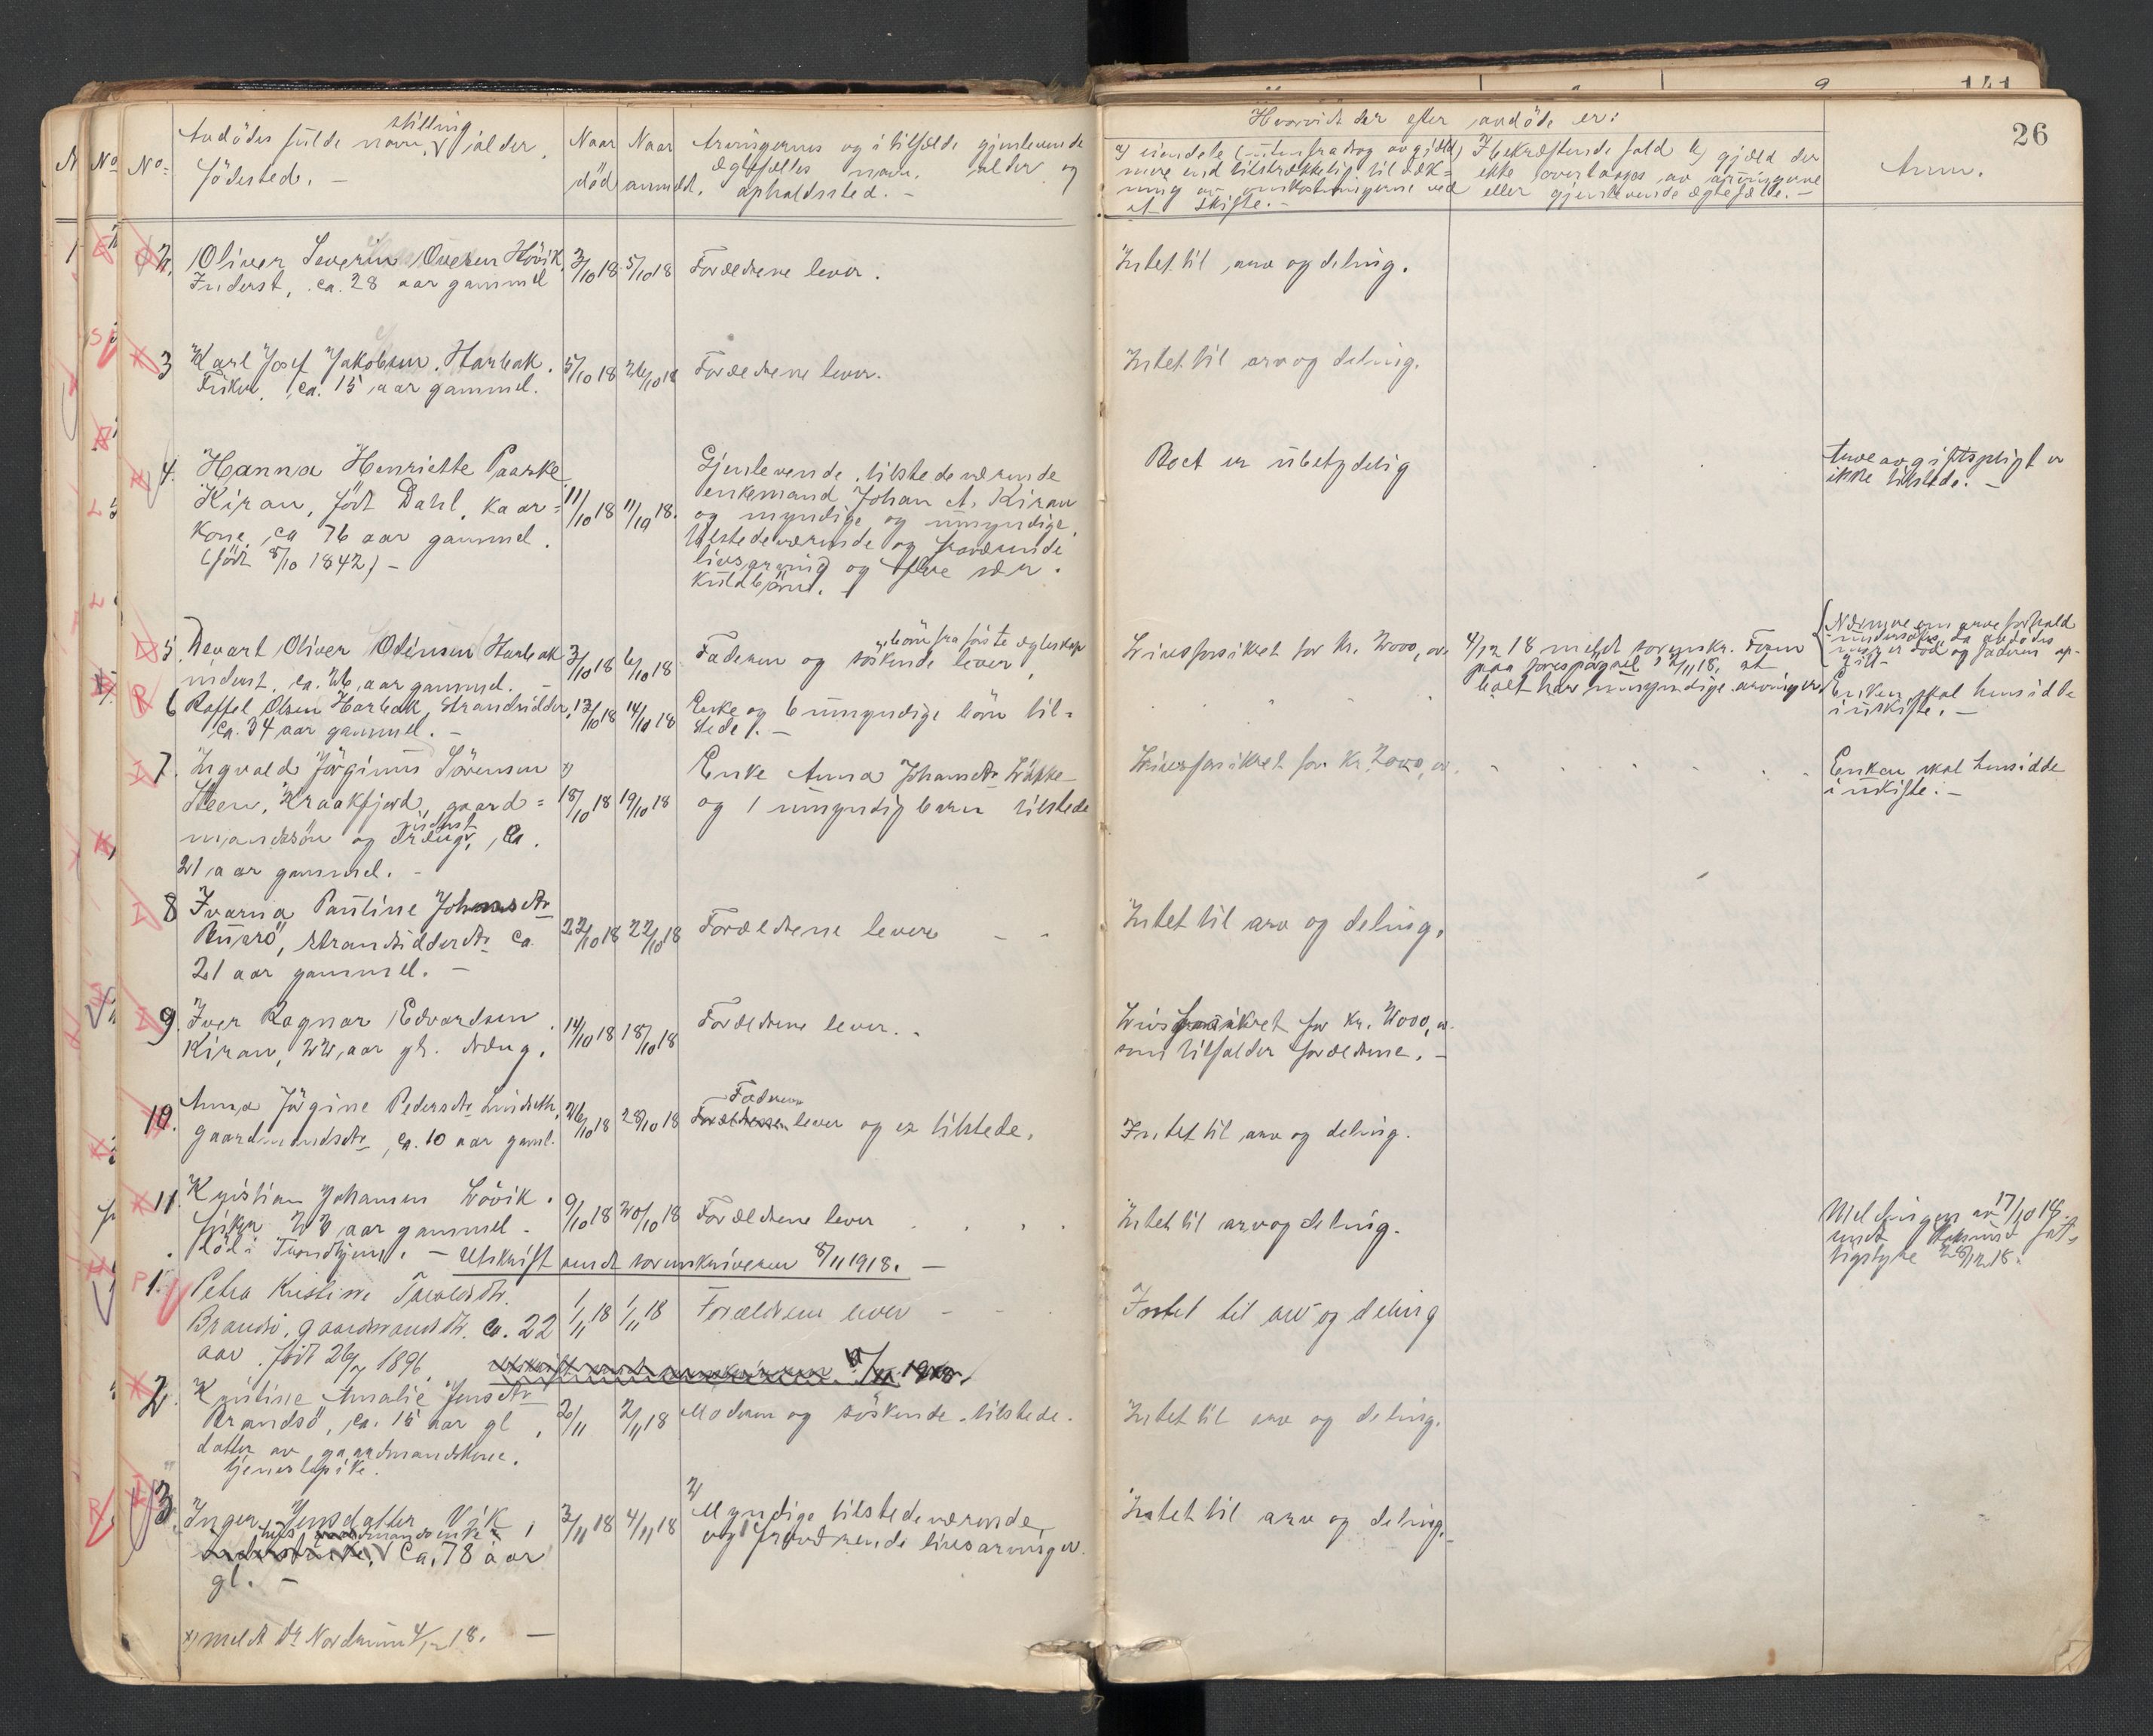 26
Avdödes fulde navn, stilling, alder,
födested. -
Naar
död
Naar
anmeldt.
Arvingernes og i tilfælde gjenlevende
ægtefælles navn, alder og
opholdssted. -
Hvorvidt der efter avdöde er:
a) eiendele (uten fradrag av gjæld)
mere end tilstrækkelig til dæk-
ning av omkostningerne ved
et skifte. -
I bekræftende fald b) gjæld der
ikke overtages av arvingerne
eller gjenlevende ægtefælle. -
Anm.
No No No.
2. Oliver Severin Ovesen Hövik, 3/10 18 5/10 18 Forældrene lever. Intet til arv og deling.
Inderst, ca. 28 aar gammel
3 Karl Josef Jakobsen Harbak. 5/10 18 26/10 18 Forældrene lever. Intet til arv og deling.
Fisker, ca. 15 aar gammel.
4. Hanna Henriette Paaske
Kiran, födt Dahl, kaar= 11/10 18 11/10 18.
kone, ca 76 aar gammel.
(födt 8/10 1842) -
Gjenlevende tilstedeværende
enkemand Johan A. Kiran
og myndige og umyndige
tilstedeværende og fraværende
livsarving og flere sær-
kuldbörn. -
Boet er ubetydelig
Arveavgiftspligt er
ikke tilstede. -
5. Devart Oliver Odinsen Harbak 3/10 18 6/10 18
inderst, ca. 26 aar gammel. -
börn fra förste egteskap
Faderen og söskende lever
Livsforsikret for kr. 2000,00
4/12 18 meldt sorenskr. Fosen
paa forespörgsel 2/11 18, at
boet har umyndige arvinger
Nærmere om arveforhold
undersökes, da avdödes
mor er död og faderen op-
gift -
6 Roffel Olsen Harbak, strandsidder, 13/10 18 14/10 18 Enke og 6 umyndige börn til-
ca. 34 aar gammel. - stede. -
Enken skal hensidde
i uskifte. -
7. Ingvald Jörginus Sörensen x)
Steen, Kraakfjord, gaard= 18/10 18 19/10 18
mandssön og inderst dræng, ca.
21 aar gammel. -
Enke Anna Johansdtr Lükke
og 1 umyndig barn tilstede
Livsforsikret for kr. 2000,00.
Enken skal hensidde
i uskifte. -
8 Ivarna Pauline Johansdtr
Buarö, strandsidderdtr ca. 22/10 18 22/10 18 Forældrene lever - - Intet til arv og deling.
21 aar gammel. -
9. Iver Ragnar Edvardsen 14/10 18 18/10 18 Forældrene lever. - Livsforsikret for kr. 2000,00.
Kiran, 22 aar gl. dræng. som tilfalder forældrene. -
10. Anna Jörgine Pedersdtr Lindseth, 26/10 18 28/10 18 Faderen
gaardmandsdtr, ca. 10 aar gaml. Forældrene lever og er tilstede. Intet til arv og deling.
11. Kristian Johansen Lövik. 9/10 18 20/10 18 Forældrene lever Intet til arv og deling.
fisker 26 aar gammel -
död i Trondhjem. - Utskrift sendt sorenskriveren 8/11 1918. -
Meldingen av 17/10 18
sendt Stoksund fat-
tigstyre 28/12 18.
1. Petra Kristine Tharaldsdtr.
Brandsö, gaardmandsdtr. ca. 22 1/11 18 1/11 18 Forældrene lever - - Intet til arv og deling
aar. födt 26/7 1896. Utskrift sendt sorenskriveren 10/11 1918.
2. Kristine Amalie Jensdtr
Brandsö, ca. 15 aar gl, 2/11 2/11 18 Moderen og söskende tilstede. Intet til arv og deling.
datter av gaardmandskone.
tjenestepike.
3. Inger Jensdatter Vik, 3/11 18 4/11 18
ca. 78 aar
gl. -
Myndige tilstedeværende
og fraværende livsarvinger.
Intet til arv og deling. -
x) meldt dr Nordrum 4/12 18. -